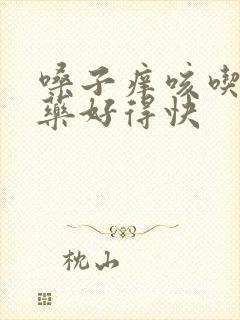 嗓子痒咳喫
藥好得快
枕山